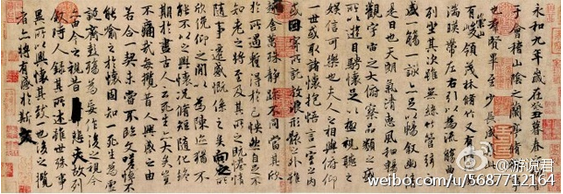 永和九年歲在癸丑暮春
會稽山陰之蘭亭
也羣賢畢至少長咸
崇山
有峻領茂林脩竹又
湍暎帶左右引以為流觴
列坐其次雖無絲竹管弦
盛一觴一詠亦足以暢敘幽
是日也天朗氣清惠風和暢
觀宇宙之大俯察品類之盛
所以遊目騁懷足以極視聽之
娛信可樂也夫人之相與俯仰
一世或取諸懷抱悟言一室之內
或因寄所託放浪形骸之外雖
趣舍萬殊靜躁不同當其欣
於所遇蹔得於己快然自足不
知老之將至及其所之既惓情
隨事遷感慨係之矣向之所
欣俛仰之閒以為陳迹猶不
能不以之興懷況脩短隨化終
期於盡古人云死生亦大矣豈
不痛哉每攬昔人興感之由
若合一契未嘗不臨文嗟悼不
能喻之於懷固知一死生為虛
誕齊彭殤為妄作後之視今
亦由今之視昔悲夫故列
敘時人錄其所述雖世殊事
異所以興懷其致一也後之攬
者亦將有感於斯文
weibo.com/5687712164